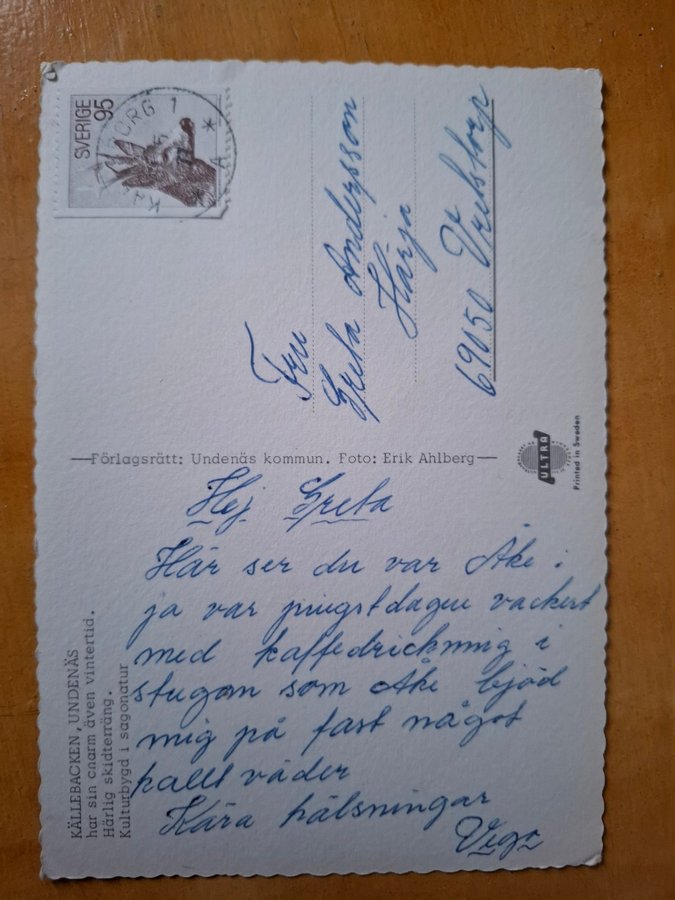 SVERIGE 95
BORG 1
Fru
Greta Andersson
Härja
69050 Vretstorp
Förlagsrätt: Undenäs kommun. Foto: Erik Ahlberg
ULTRA
Printed in Sweden
KÄLLEBACKEN, UNDENÄS
har sin charm även vintertid.
Härlig skidterräng.
Kulturbygd i sagonatur
Hej Greta
Här ser du var Åke i
ja var pingstdagen vackert
med kaffedrickning i
stugan som Åke bjöd
mig på fast något
kallt väder
Kära hälsningar
Vega